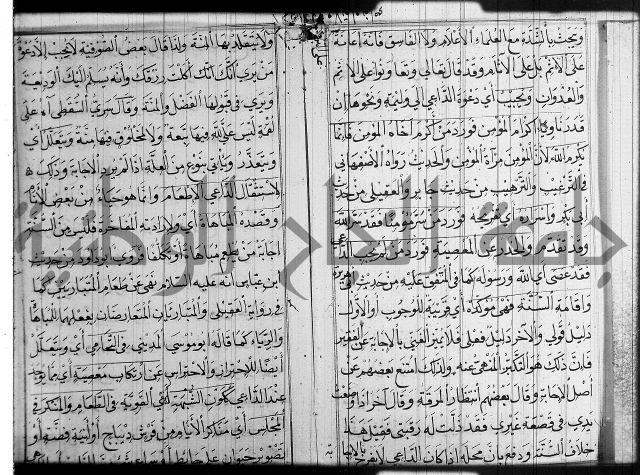 ويجث بالشدة مع العلماء الأعلام ولا الفاسق فانه اعانة
على الاثم بل على الآثام وقد قال تعالى وتعاونوا على الاثم
والعدوان ويجيب اي دعوة الداعي الى وليمة ونحوها ان
قدر ناويا اكرام المؤمن فورد من اكرم اخاه المؤمن فانما
يكرم الله لان المؤمن مرآة المؤمن والحديث رواه الأصفهاني
في الترغيب والترهيب من حديث جابر والعقيلي من حديث
ابي بكر وان سره اي تفريحه فورد من سر مؤمنا فقد سر الله
وقد تقدم والحذر عن المعصية فورد من لم يجب الداعي
فقد عصى اي الله ورسوله كما في المتفق عليه من حديث ابي هريرة
واقامة السنة فهي مؤكدة اي قريبة للوجوب او الأول
دليل قولي والآخر دليل فعلي فلا يميز الغني بالاجابة عن الفقير
فان ذلك هو التكبر المنهي عنه ولذلك امتنع بعضهم عن
اصل الاجابة وقال بعضهم انتظار المرقة وقال آخر اذا وضعت
يدي في قصعة غيري فقد ذلت له رقبتي فقيل هذا
خلاف السنة ودفع بان محله اذا كان الداعي لا يفرح بالاجابة
ولا يتقلد بها المنة ولذا قال بعض الصوفية لا تجيب الا دعوة
من يرى انك انك اكلت رزقك وأنه يسلم اليك الوديعة
ويرى في قبولها الفضل والمنة وقال سري السقطي آه على
لقمة ليس على لله فيها تبعة ولا لمخلوق فيها منة ويتعلل أي
ويتعذر ويأتي بنوع من العلة اذا لم يرد الاجابة وذلك
لاستثقال الداعي لاطعام وانما هو حياء من بعض الأنام
وقصده المباهاة أي ولإرادته المفاخرة فليس من السنة
اجابة من يطعم مباهاة أو تكلفا فروى ابو داود من حديث
ابن عباس انه عليه السلام نهى عن طعام المتباريين كما
في رواية العقيلي والمتباريان المتعارضان بفعلهما للمباهاة
والرياء كما قاله ابو موسى المديني في التحامي أي ويتعلل
ايضا للاحتراز والاحتراس عن ارتكاب معصية أي مما يوجد
عند الداعي ككون الشبهة القوية في الطعام والمنكر في
المجلس أي منكر الأنام من فرش ديباج أو آنية وفضة أو
تصوير حيوان على حائط